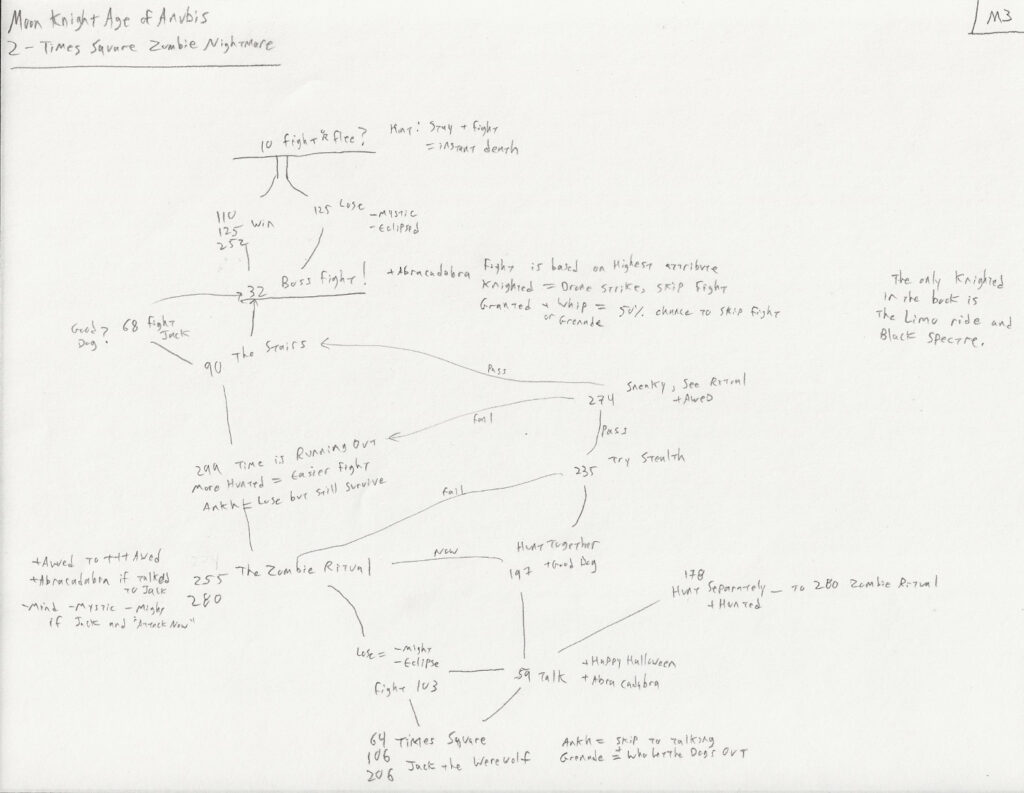 Moon Knight Age of Anubis
M3
2 - Times Square Zombie Nightmare
10 Fight or Flee?
Hint: Stay + fight
= instant death
110
125 Win
252
125 Lose
-Mystic
-Eclipsed
32 Boss Fight!
+Abracadabra
Fight is based on Highest attribute
Knighted = Drone Strike, Skip Fight
Granted + Whip = 50% chance to skip fight
or Grenade
The only Knighted
in the book is
The Limo ride and
Black Spectre.
Good
Dog?
68 Fight
Jack
90 The Stairs
Pass
274 Sneaky, See Ritual
+Awed
Fail
Pass
235 Try Stealth
299 Time is Running Out
More Hunted = Easier Fight
Ankh = Lose but still survive
Fail
+Awed to +++Awed
+Abracadabra if talked
to Jack
-Mind -Mystic -Might
if Jack and "Attack Now"
255 The Zombie Ritual
280
Now
Hunt Together
197 +Good Dog
178
Hunt Separately - to 280 Zombie Ritual
+Hunted
Lose = -Might
-Eclipse
Fight 103
59 Talk
+Happy Halloween
+Abracadabra
64 Times Square
106 Jack the Werewolf
206
Ankh = Skip to talking
Grenade = + Who let the Dogs Out